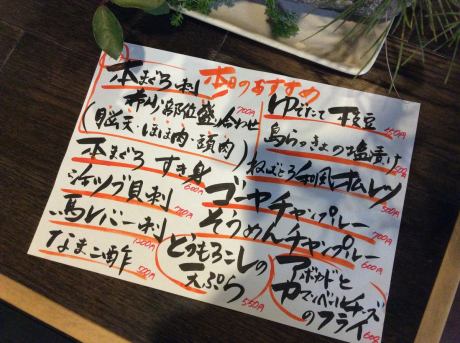 本日のおすすめ
本まぐろ刺
希少部位盛合わせ 700円
(脳天・ほほ肉・頭肉)
本まぐろ すき身 600円
活ツブ貝刺 700円
馬レバー刺 1200円
なまこ酢 500円
ゆでたて枝豆 400円
島らっきょの塩漬け
ねばとろ和風オムレツ
ゴーヤチャンプルー 700円
そうめんチャンプルー 600円
とうもろこしの
天ぷら 550円
アボカドと
カマンベールチーズ
のフライ